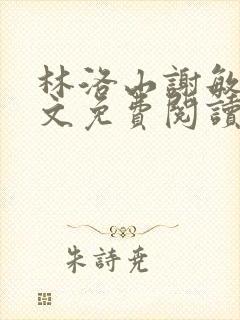 林洛山謝敏
文免費閱讀
朱詩堯